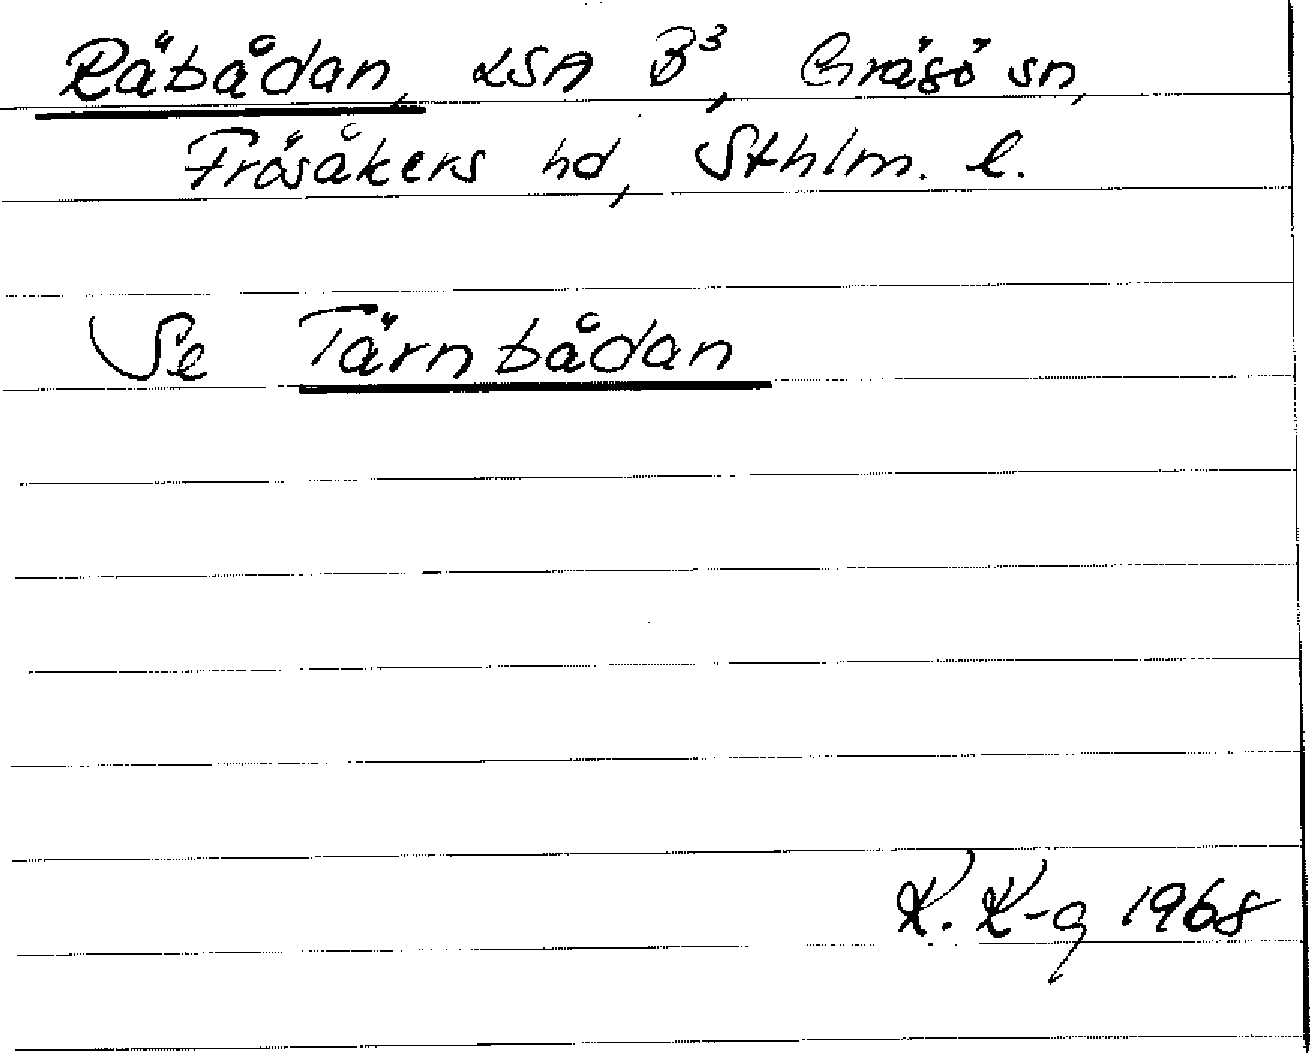 Räbådan, LSA B³, Gräsö sn,
Frösåkers hd, Sthlm. l.
Se Tärnbådan
K. K-g 1968